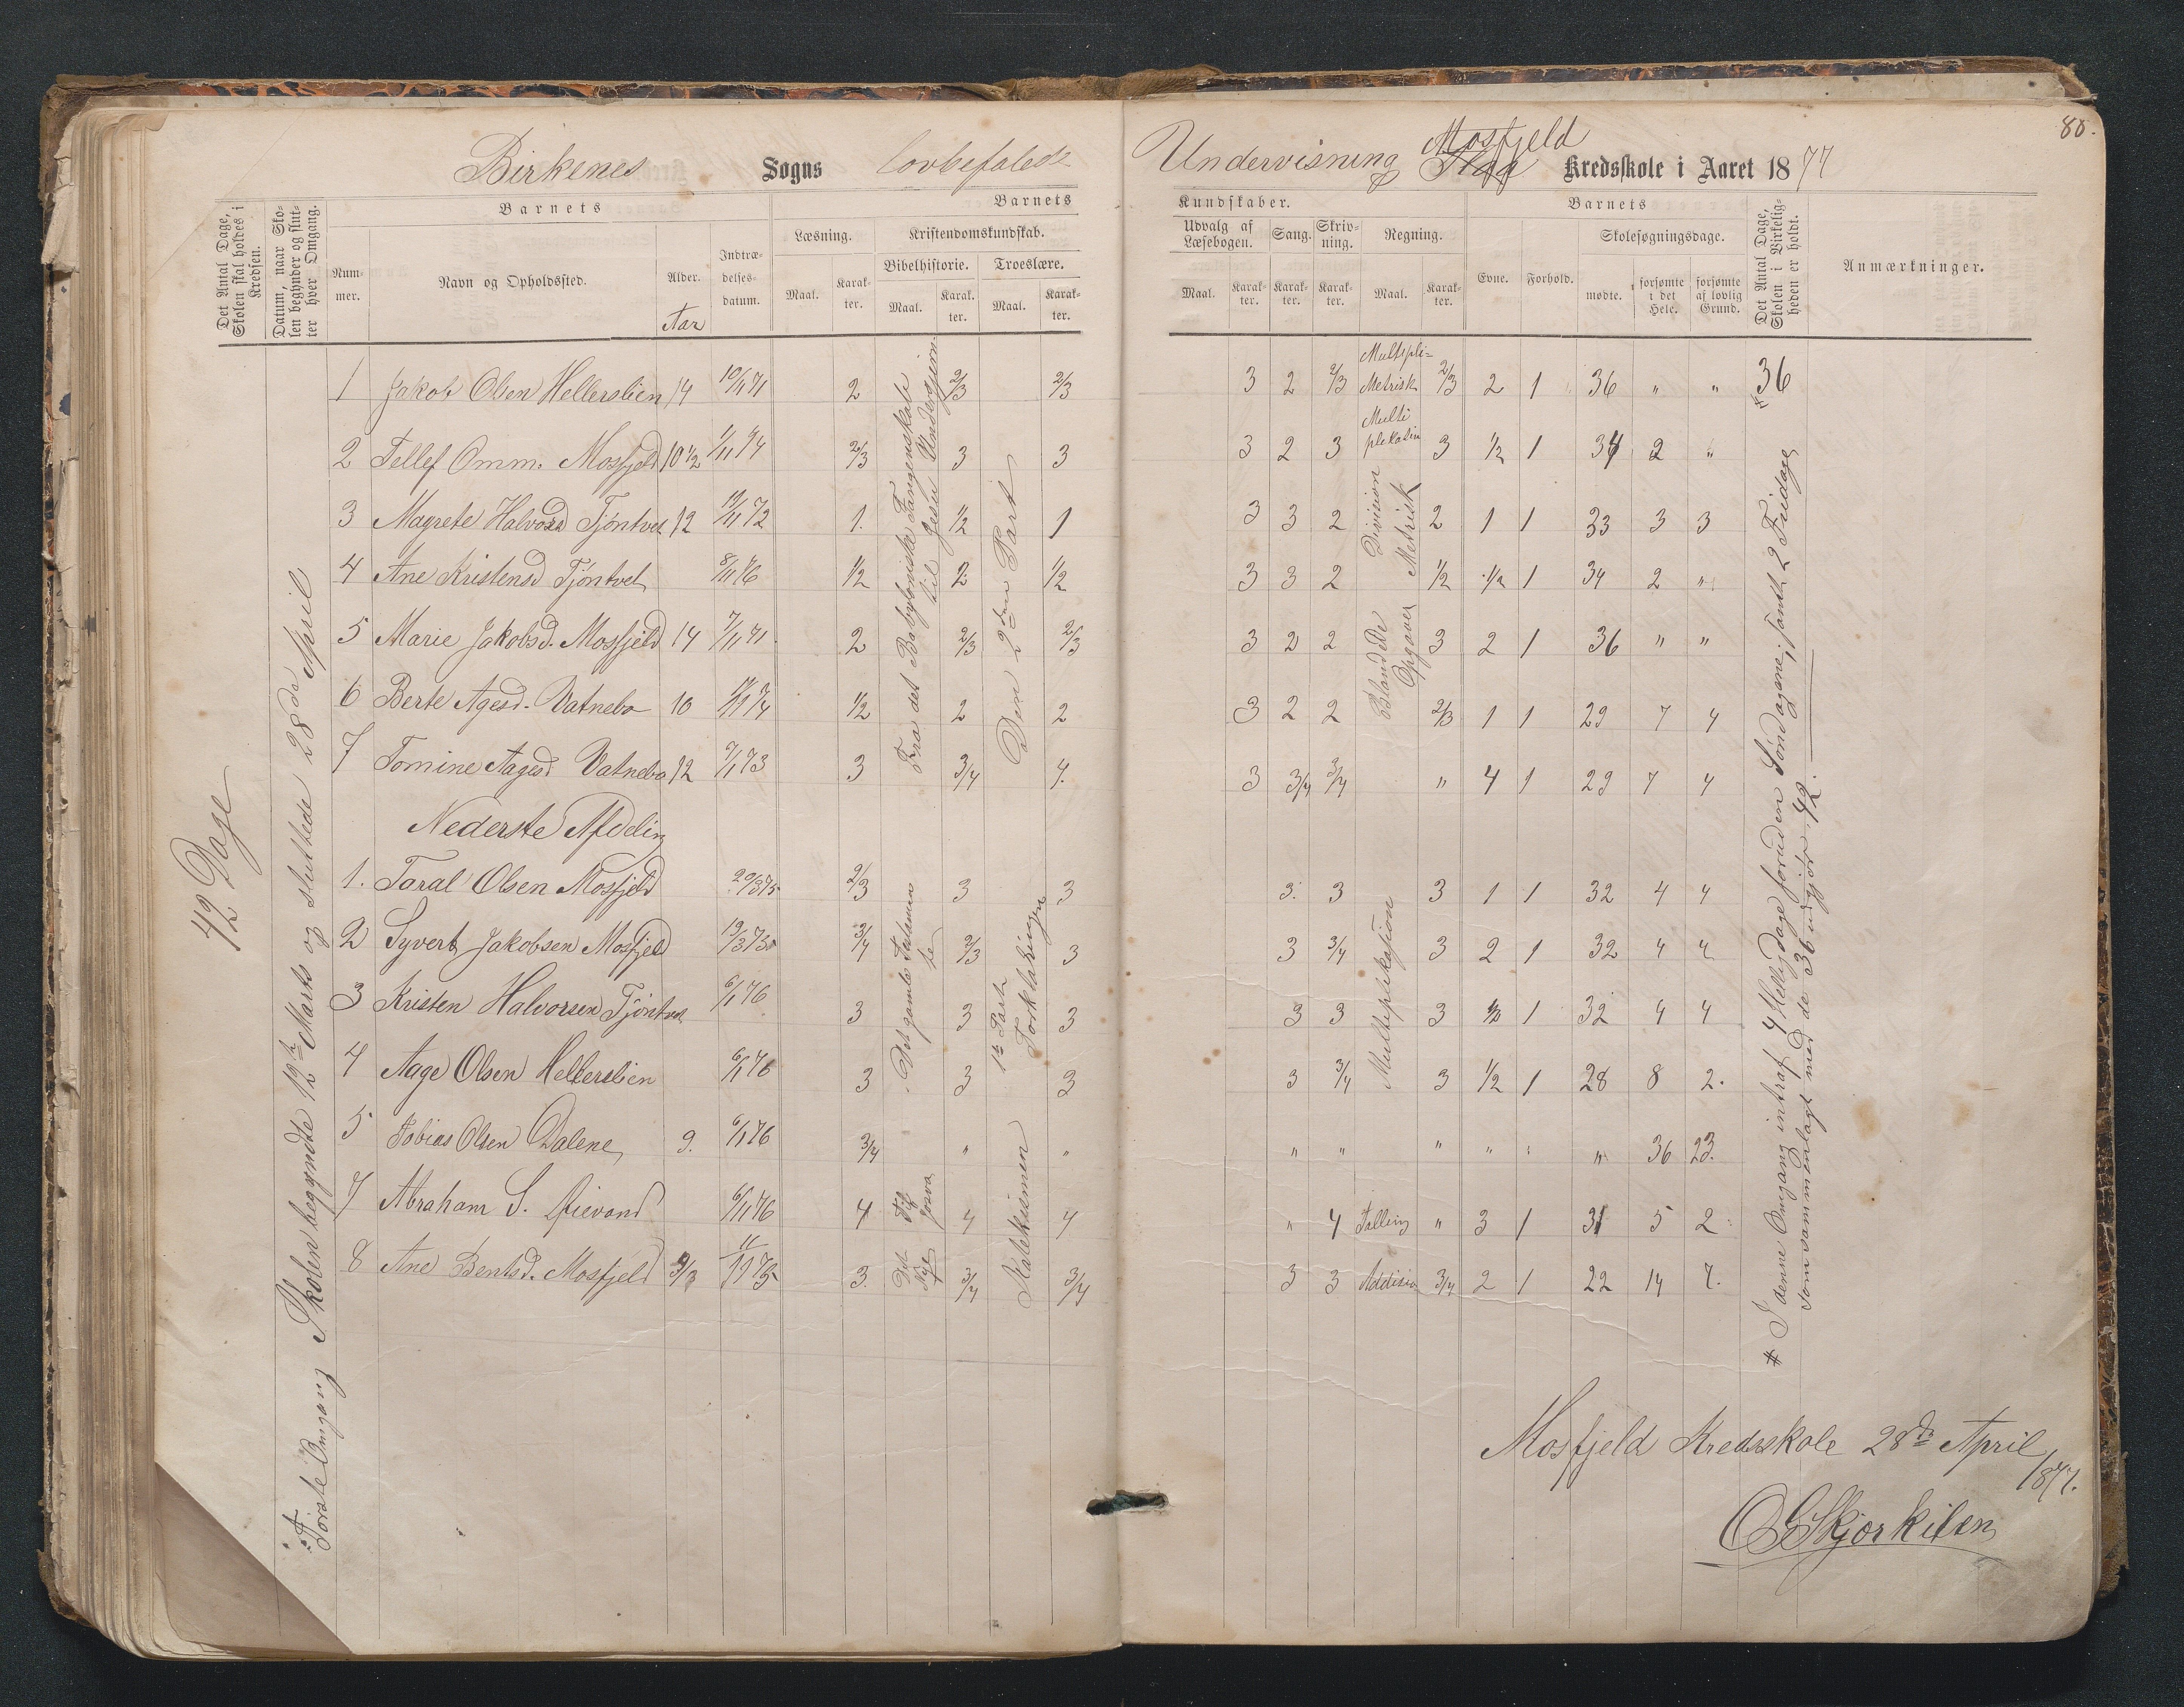 80.
Birkenes Sogns lovbefalede Undervisning Mosfjeld Kredsskole i Aaret 1877
Det Antal Dage, Skolen skal holdes i Kredsen.
Datum, naar Skolen begynder og slutter hver Omgang.
Barnets
Nummer. Navn og Opholdssted. Alder. Indtrædelsesdatum.
Aar
Barnets Kundskaber.
Læsning. Kristendomskundskab. Udvalg af Læsebogen. Sang. Skrivning. Regning.
Bibelhistorie. Troeslære.
Maal. Karakter. Maal. Karakter. Maal. Karakter. Maal. Karakter. Karakter. Karakter. Maal. Karakter.
Barnets
Evne. Forhold. Skolesøgningsdage.
mødte. forsømte i det Hele. forsømte af lovlig Grund.
Det Antal Dage, Skolen i Virkeligheden er holdt.
Anmærkninger.
42 Dage
Første Omgang Skolen begyndte 12te Marts og sluttede 28de April
Fra det Babyloniske Fangenskab til Jesu Undergjern.
Den 2den Part
1 Jakob Olsen Hellerslien 14 10/11 71 2 2/3 2/3 3 2 2/3 Multipli= Metrisk 2/3 2 1 36 " " * 36
2 Tellef Omm. Mosfjeld 10 1/2 1/11 74 2/3 3 3 3 2 3 Multiplekation 3 1/2 1 34 2 "
Division Metrisk
3 Magrete Halvorsd Tjöntvet 12 12/11 72 1. 1/2 1 3 3 2 2 1 1 33 3 3
4 Ane Kristensd Tjöntvet 8/11 76 1/2 2 1/2 3 3 2 1/2 1/2 1 34 2 "
Blandede Opgaver
5 Marie Jakobsd. Mosfjeld 14 7/11 71. 2 2/3 2/3 3 2 2 3 2 1 36 " "
6 Berte Agesd. Vatnebo 10 1/2 2 2 3 2 2 2/3 1 1 29 7 4
7 Tomine Aagesd Vatnebo 12 9/1 73 3 3/4 4. 3 3/4 3/4 " 4 1 29 7 4
Nederste Afdeling
Det gamle Testamente
1te Part Forklaringen
Multiplikation
1. Taral Olsen Mosfjeld 20/3 75 2/3 3 3 3. 3 3 1 1 32 4 4
2 Syvert Jakobsen Mosfjeld 19/3 73 3/4 2/3 3 3 3/4 3 2 1 32 4 4
3 Kristen Halvorsen Tjöntvet 6/1 76 3 3 3 3 3 3 1/2 1 32 4 4
4 Aage Olsen Hellerslien 6/1 76 3 3 3 3 3/4 3 1/2 1 28 8 2.
Katekismen
5 Tobias Olsen Dalene 9. 6/1 76 3/4 " " " " " " " " 36 23.
7 Abraham S. Øievand 6/11 76 4 Til Josva 4 4 " 4 Talling " 3 1 31 5 2
8 Ane Bentsd. Mosfjeld 11/11 75 3. Det Nye 3/4 3/4 3 3 Addision 3/4 2 1 22 14 7.
* I denne Omgang intraf 4 Helligdage foruden Søndagene, samt 2 Fridage
som sammenlagt med de 36 udgjör 42.
Mosfjeld Kredsskole 28de April
1877.
O G Skjorkilen